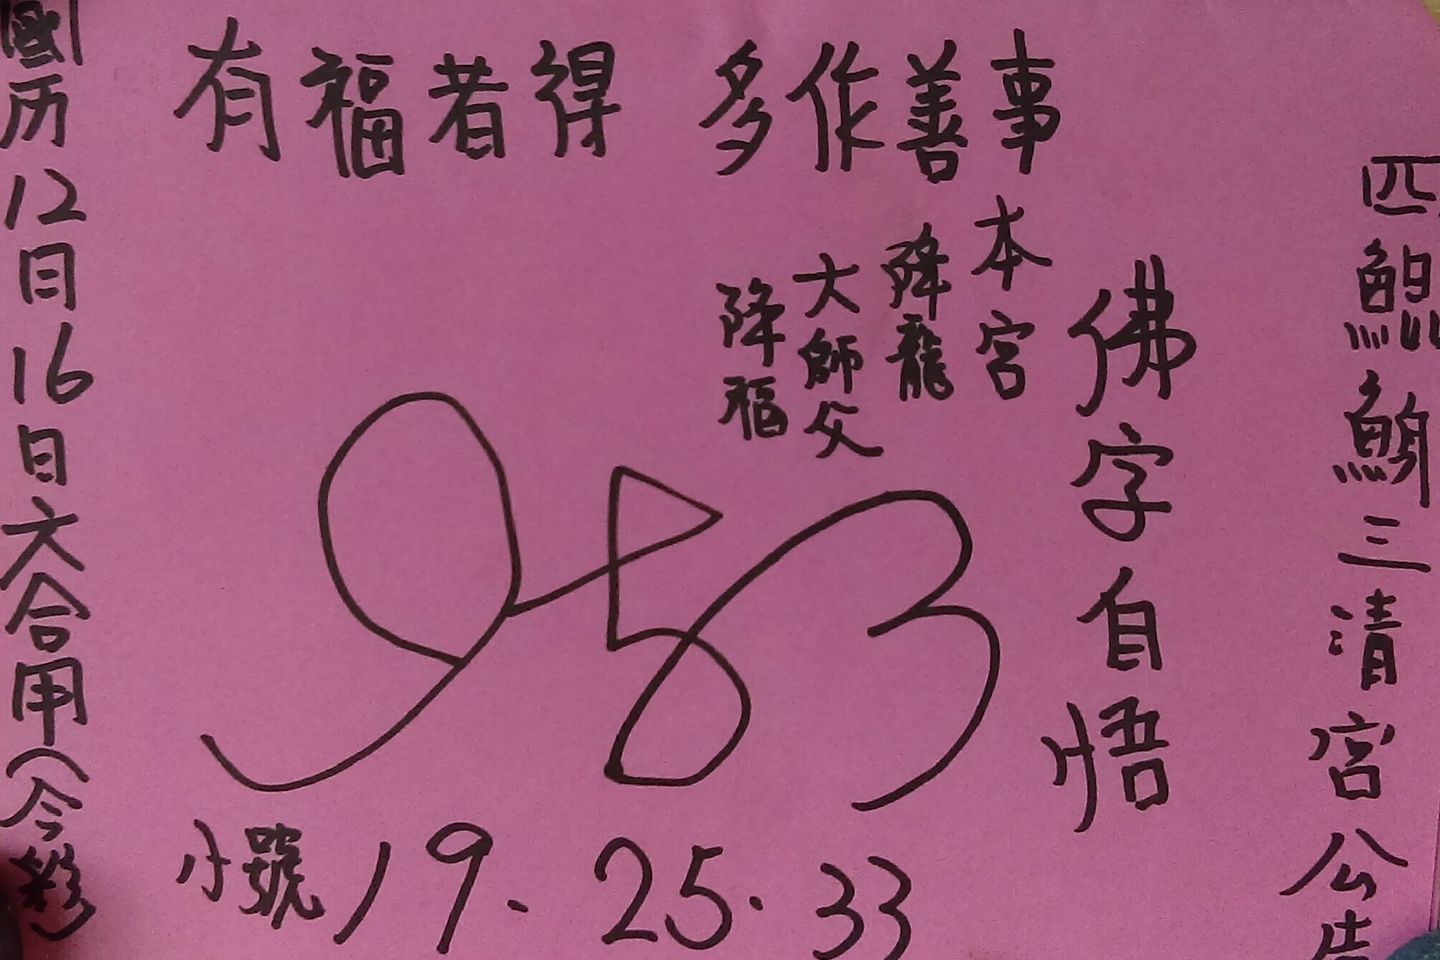 有福者得 多作善事
鯤鯓三清宮公告
佛字自悟
本宮
降龍
大師父
降福
小號 19. 25. 33
國历12日16日六合用(今彩)